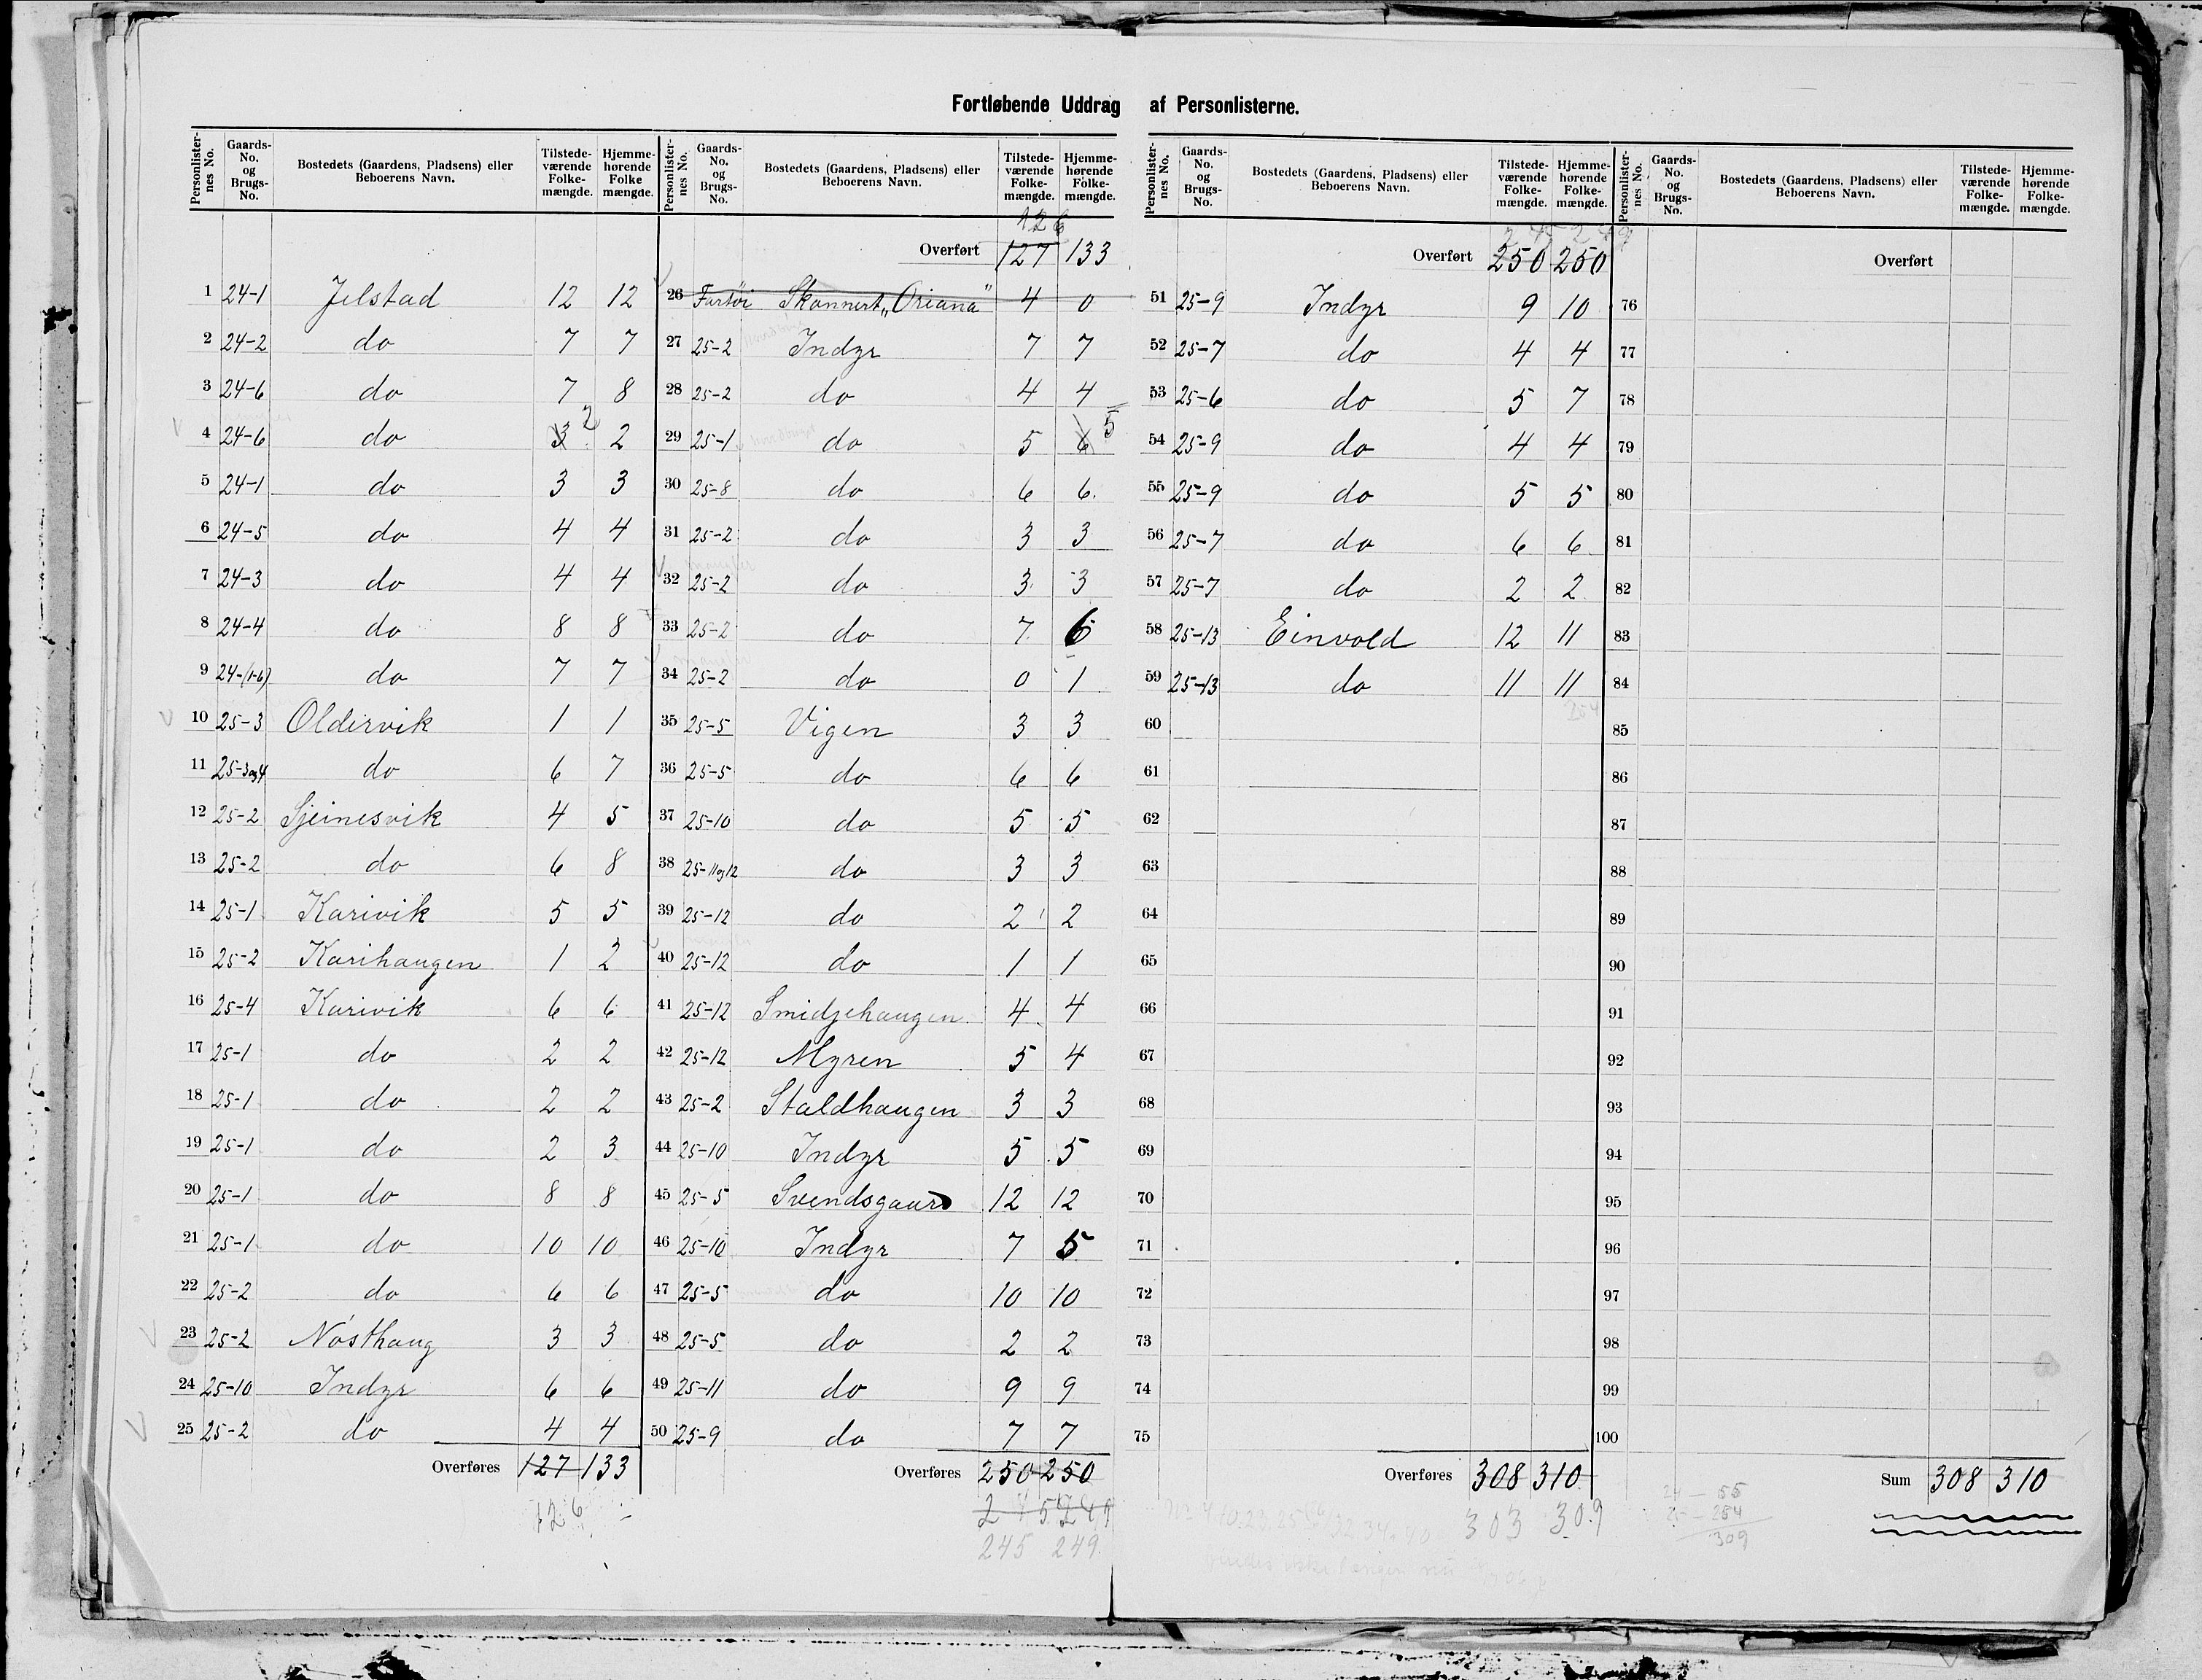 Fortløbende Uddrag af Personlisterne.
Personlisternes No. Gaards-No. og Brugs-No. Bostedets (Gaardens, Pladsens) eller Beboerens Navn. Tilstedeværende Folkemængde. Hjemmehørende Folkemængde.
1 24-1 Jelstad 12 12
2 24-2 do 7 7
3 24-6 do 7 8
4 24-6 do 3 2 2
5 24-1 do 3 3
6 24-5 do 4 4
7 24-3 do 4 4
8 24-4 do 8 8
9 24-(1-6) do 7 7
10 25-3 Oldervik 1 1
11 25-3og4 do 6 7
12 25-2 Sjeinesvik 4 5
13 25-2 do 6 8
14 25-1 Karivik 5 5
15 25-2 Karihaugen 1 2
16 25-4 Karivik 6 6
17 25-1 do 2 2
18 25-1 do 2 2
19 25-1 do 2 3
20 25-1 do 8 8
21 25-1 do 10 10
22 25-2 do 6 6
23 25-2 Nösthaug 3 3
24 25-10 Indyr 6 6
25 25-2 do 4 4
Overføres 127 133
126
Personlisternes No. Gaards-No. og Brugs-No. Bostedets (Gaardens, Pladsens) eller Beboerens Navn. Tilstedeværende Folkemængde. Hjemmehørende Folkemængde.
126
Overført 127 133
26 Fartöi Skonnert „Oriana" 4 0
27 25-2 Indyr 7 7
28 25-2 do 4 4
29 25-1 do 5 6 5
30 25-8 do 6 6
31 25-2 do 3 3
32 25-2 do 3 3
33 25-2 do 7 6
34 25-2 do 0 1
35 25-5 Vigen 3 3
36 25-5 do 6 6
37 25-10 do 5 5
38 25-11og12 do 3 3
39 25-12 do 2 2
40 25-12 do 1 1
41 25-12 Smidjehaugen 4 4
42 25-12 Myren 5 4
43 25-2 Staldhaugen 3 3
44 25-10 Indyr 5 5
45 25-5 Svendsgaard 12 12
46 25-10 Indyr 7 5
47 25-5 do 10 10
48 25-5 do 2 2
49 25-11 do 9 9
50 25-9 do 7 7
Overføres 250 250
245 249
245 249
Personlisternes No. Gaards-No. og Brugs-No. Bostedets (Gaardens, Pladsens) eller Beboerens Navn. Tilstedeværende Folkemængde. Hjemmehørende Folkemængde.
245 249
Overført 250 250
51 25-9 Indyr 9 10
52 25-7 do 4 4
53 25-6 do 5 7
54 25-9 do 4 4
55 25-9 do 5 5
56 25-7 do 6 6
57 25-7 do 2 2
58 25-13 Einvold 12 11
59 25-13 do 11 11
254
60
61
62
63
64
65
66
67
68
69
70
71
72
73
74
75
Overføres 308 310
303 309
Personlisternes No. Gaards-No. og Brugs-No. Bostedets (Gaardens, Pladsens) eller Beboerens Navn. Tilstedeværende Folkemængde. Hjemmehørende Folkemængde.
Overført
76
77
78
79
80
81
82
83
84
85
86
87
88
89
90
91
92
93
94
95
96
97
98
99
100
Sum 308 310
24 — 55
25 — 254
309